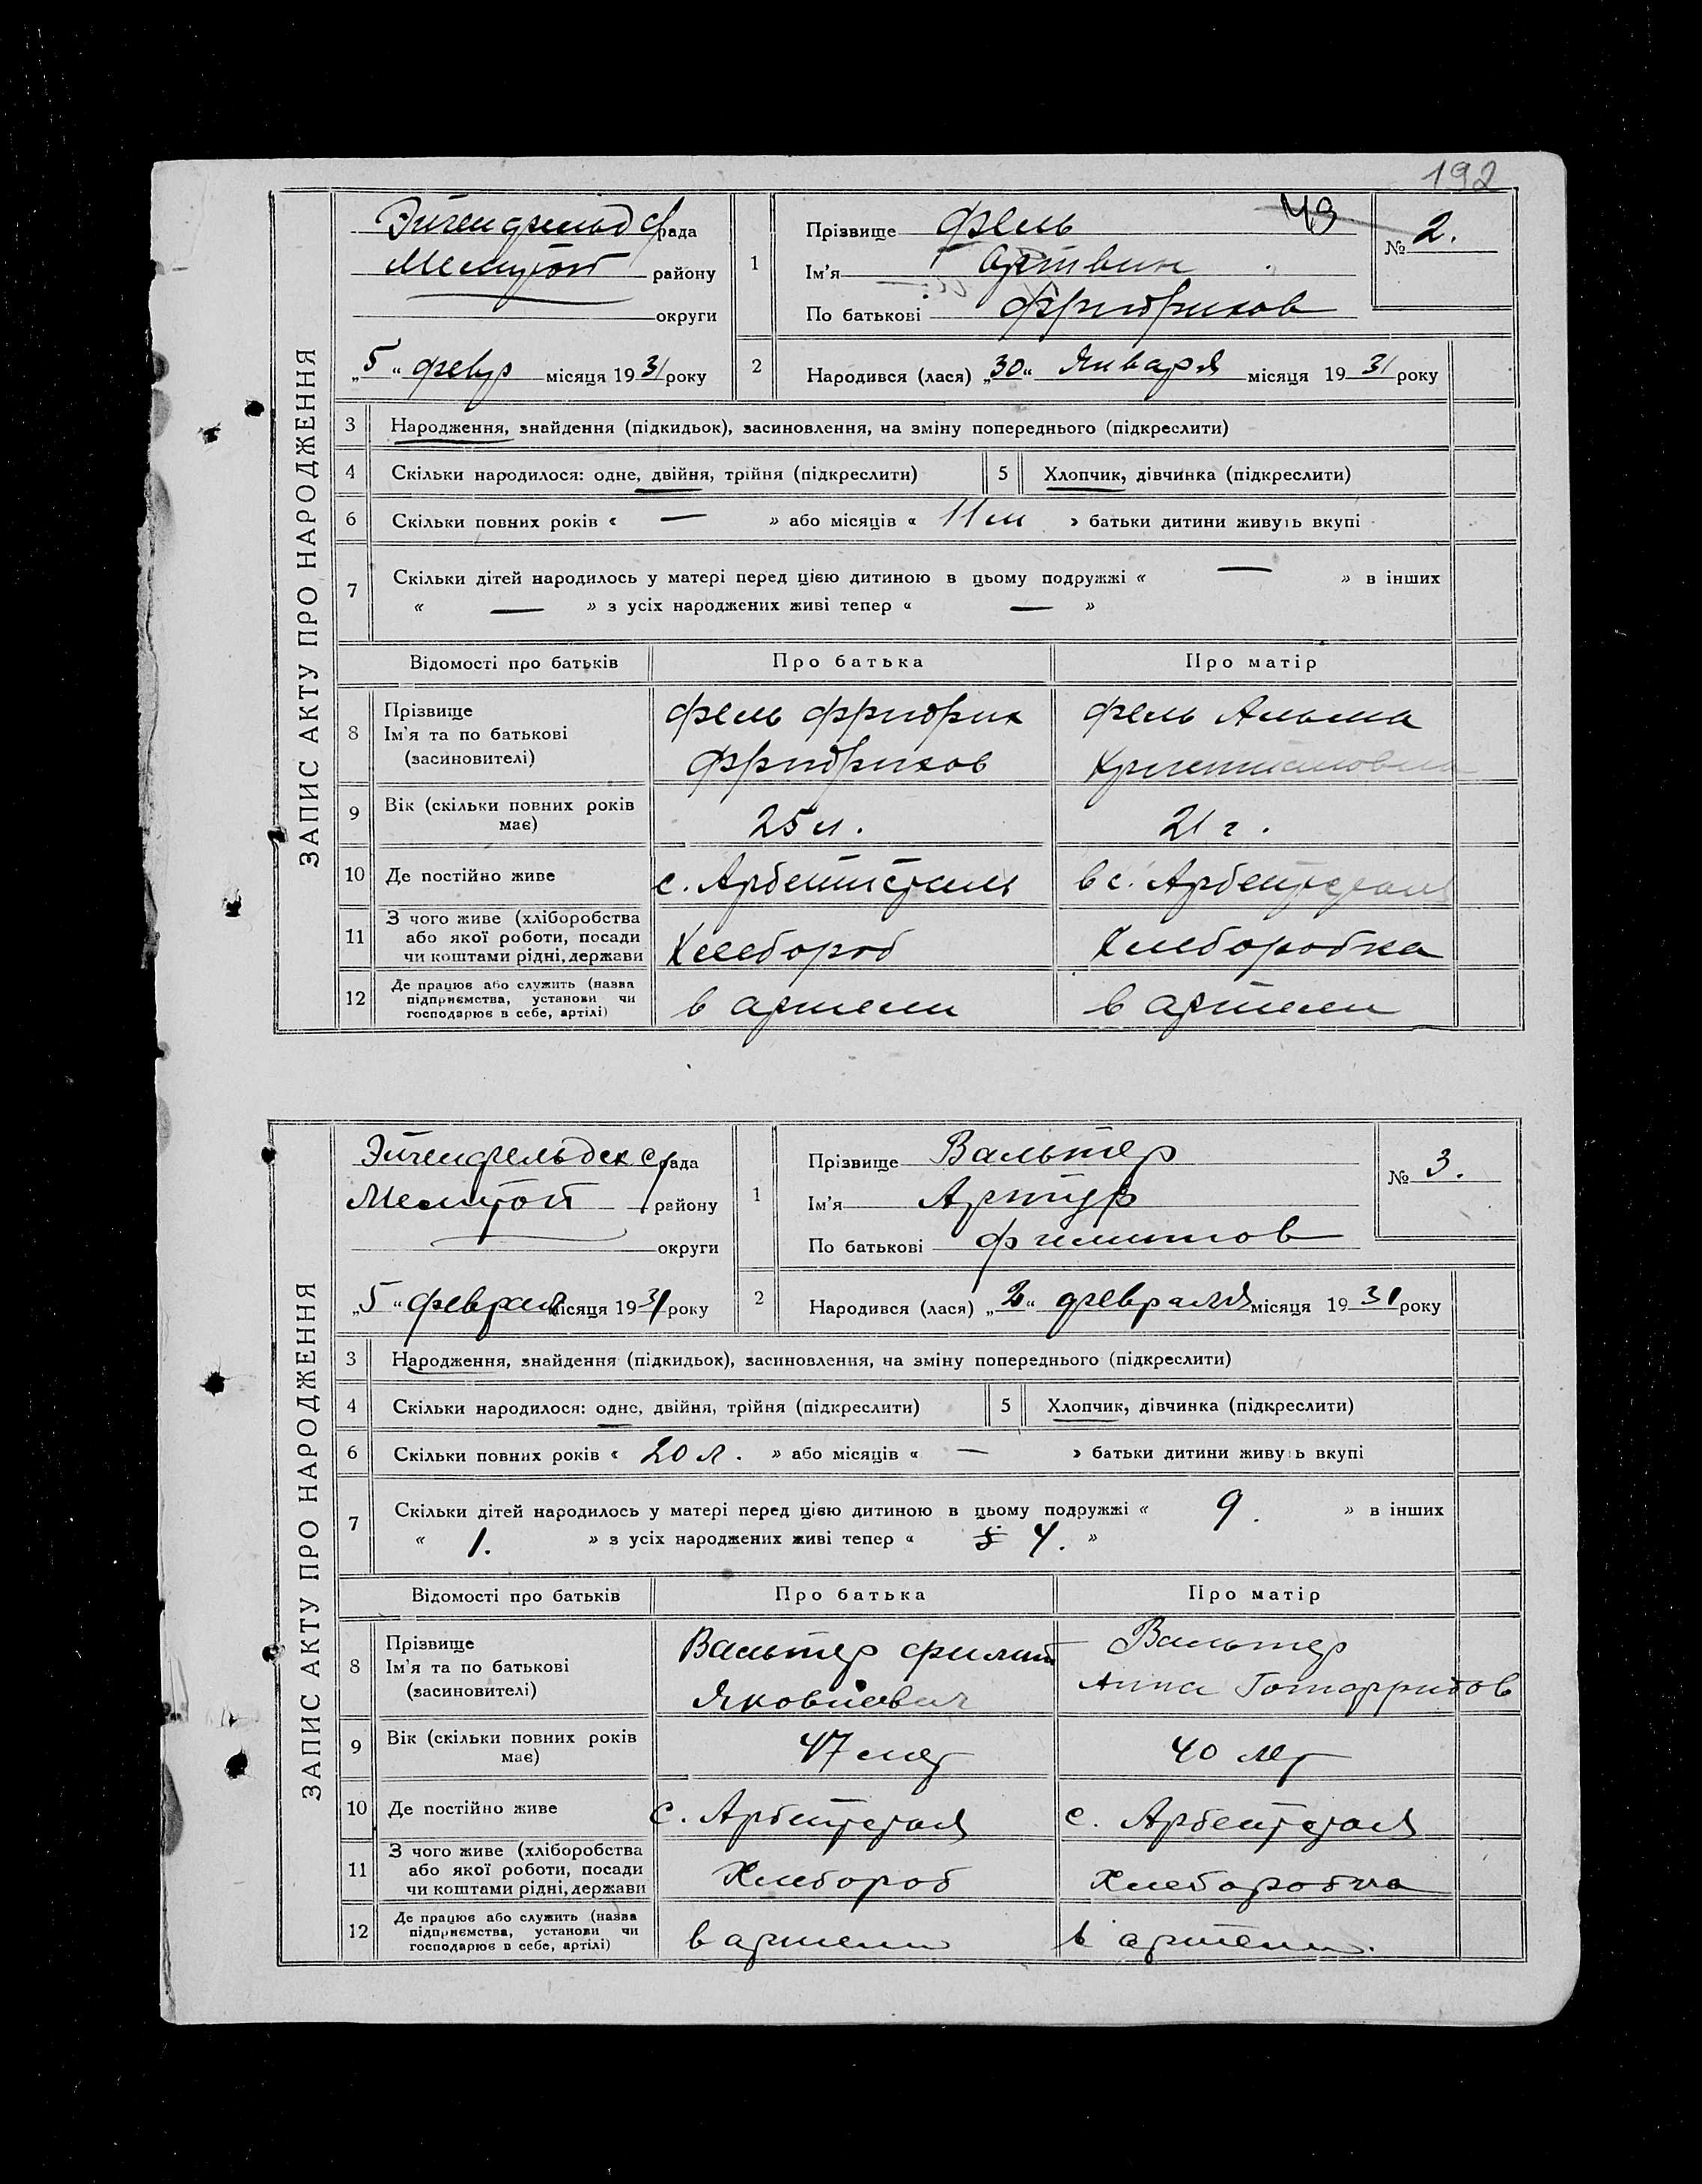 192
ЗАПИС АКТУ ПРО НАРОДЖЕННЯ
Эйгенфельд с/рада
Мелитоп району
округи
„5“ февр місяця 1931 року
1
Прізвище Фель
43
Ім'я Артвин
По батькові Фридрихов
№ 2.
2
Народився (лася) „30“ Января місяця 1931 року
3 Народження, знайдення (підкидьок), засиновлення, на зміну попереднього (підкреслити)
4 Скільки народилося: одне, двійня, трійня (підкреслити)
5 Хлопчик, дівчинка (підкреслити)
6 Скільки повних років « — » або місяців « 11 м » батьки дитини живуть вкупі
7 Скільки дітей народилось у матері перед цією дитиною в цьому подружжі « — » в інших
« — » з усіх народжених живі тепер « — »
Відомості про батьків Про батька Про матір
8 Прізвище
Ім'я та по батькові
(засиновителі)
Фель Фридрих
Фридрихов
Фель Альма
Христиановна
9 Вік (скільки повних років
має)
25 л. 21 г.
10 Де постійно живе с. Арбейтсталь в с. Арбейтсталь
11 З чого живе (хліборобства
або якої роботи, посади
чи коштами рідні, держави
Хлебороб Хлеборобка
12 Де працює або служить (назва
підприємства, установи чи
господарює в себе, артілі)
в артели в артели
ЗАПИС АКТУ ПРО НАРОДЖЕННЯ
Эйгенфельдск с/рада
Мелитоп району
округи
„5“ февраля місяця 1931 року
1
Прізвище Вальтер
Ім'я Артур
По батькові Филиппов
№ 3.
2
Народився (лася) „2“ февраля місяця 1931 року
3 Народження, знайдення (підкидьок), засиновлення, на зміну попереднього (підкреслити)
4 Скільки народилося: одне, двійня, трійня (підкреслити)
5 Хлопчик, дівчинка (підкреслити)
6 Скільки повних років « 20 л. » або місяців « — » батьки дитини живуть вкупі
7 Скільки дітей народилось у матері перед цією дитиною в цьому подружжі « 9. » в інших
« 1. » з усіх народжених живі тепер « 4. »
Відомості про батьків Про батька Про матір
8 Прізвище
Ім'я та по батькові
(засиновителі)
Вальтер Филип
Яковлевич
Вальтер
Анна Готфридов
9 Вік (скільки повних років
має)
47 лет 40 лет
10 Де постійно живе с. Арбейтсталь с. Арбейтсталь
11 З чого живе (хліборобства
або якої роботи, посади
чи коштами рідні, держави
Хлебороб Хлеборобка
12 Де працює або служить (назва
підприємства, установи чи
господарює в себе, артілі)
в артели в артели.